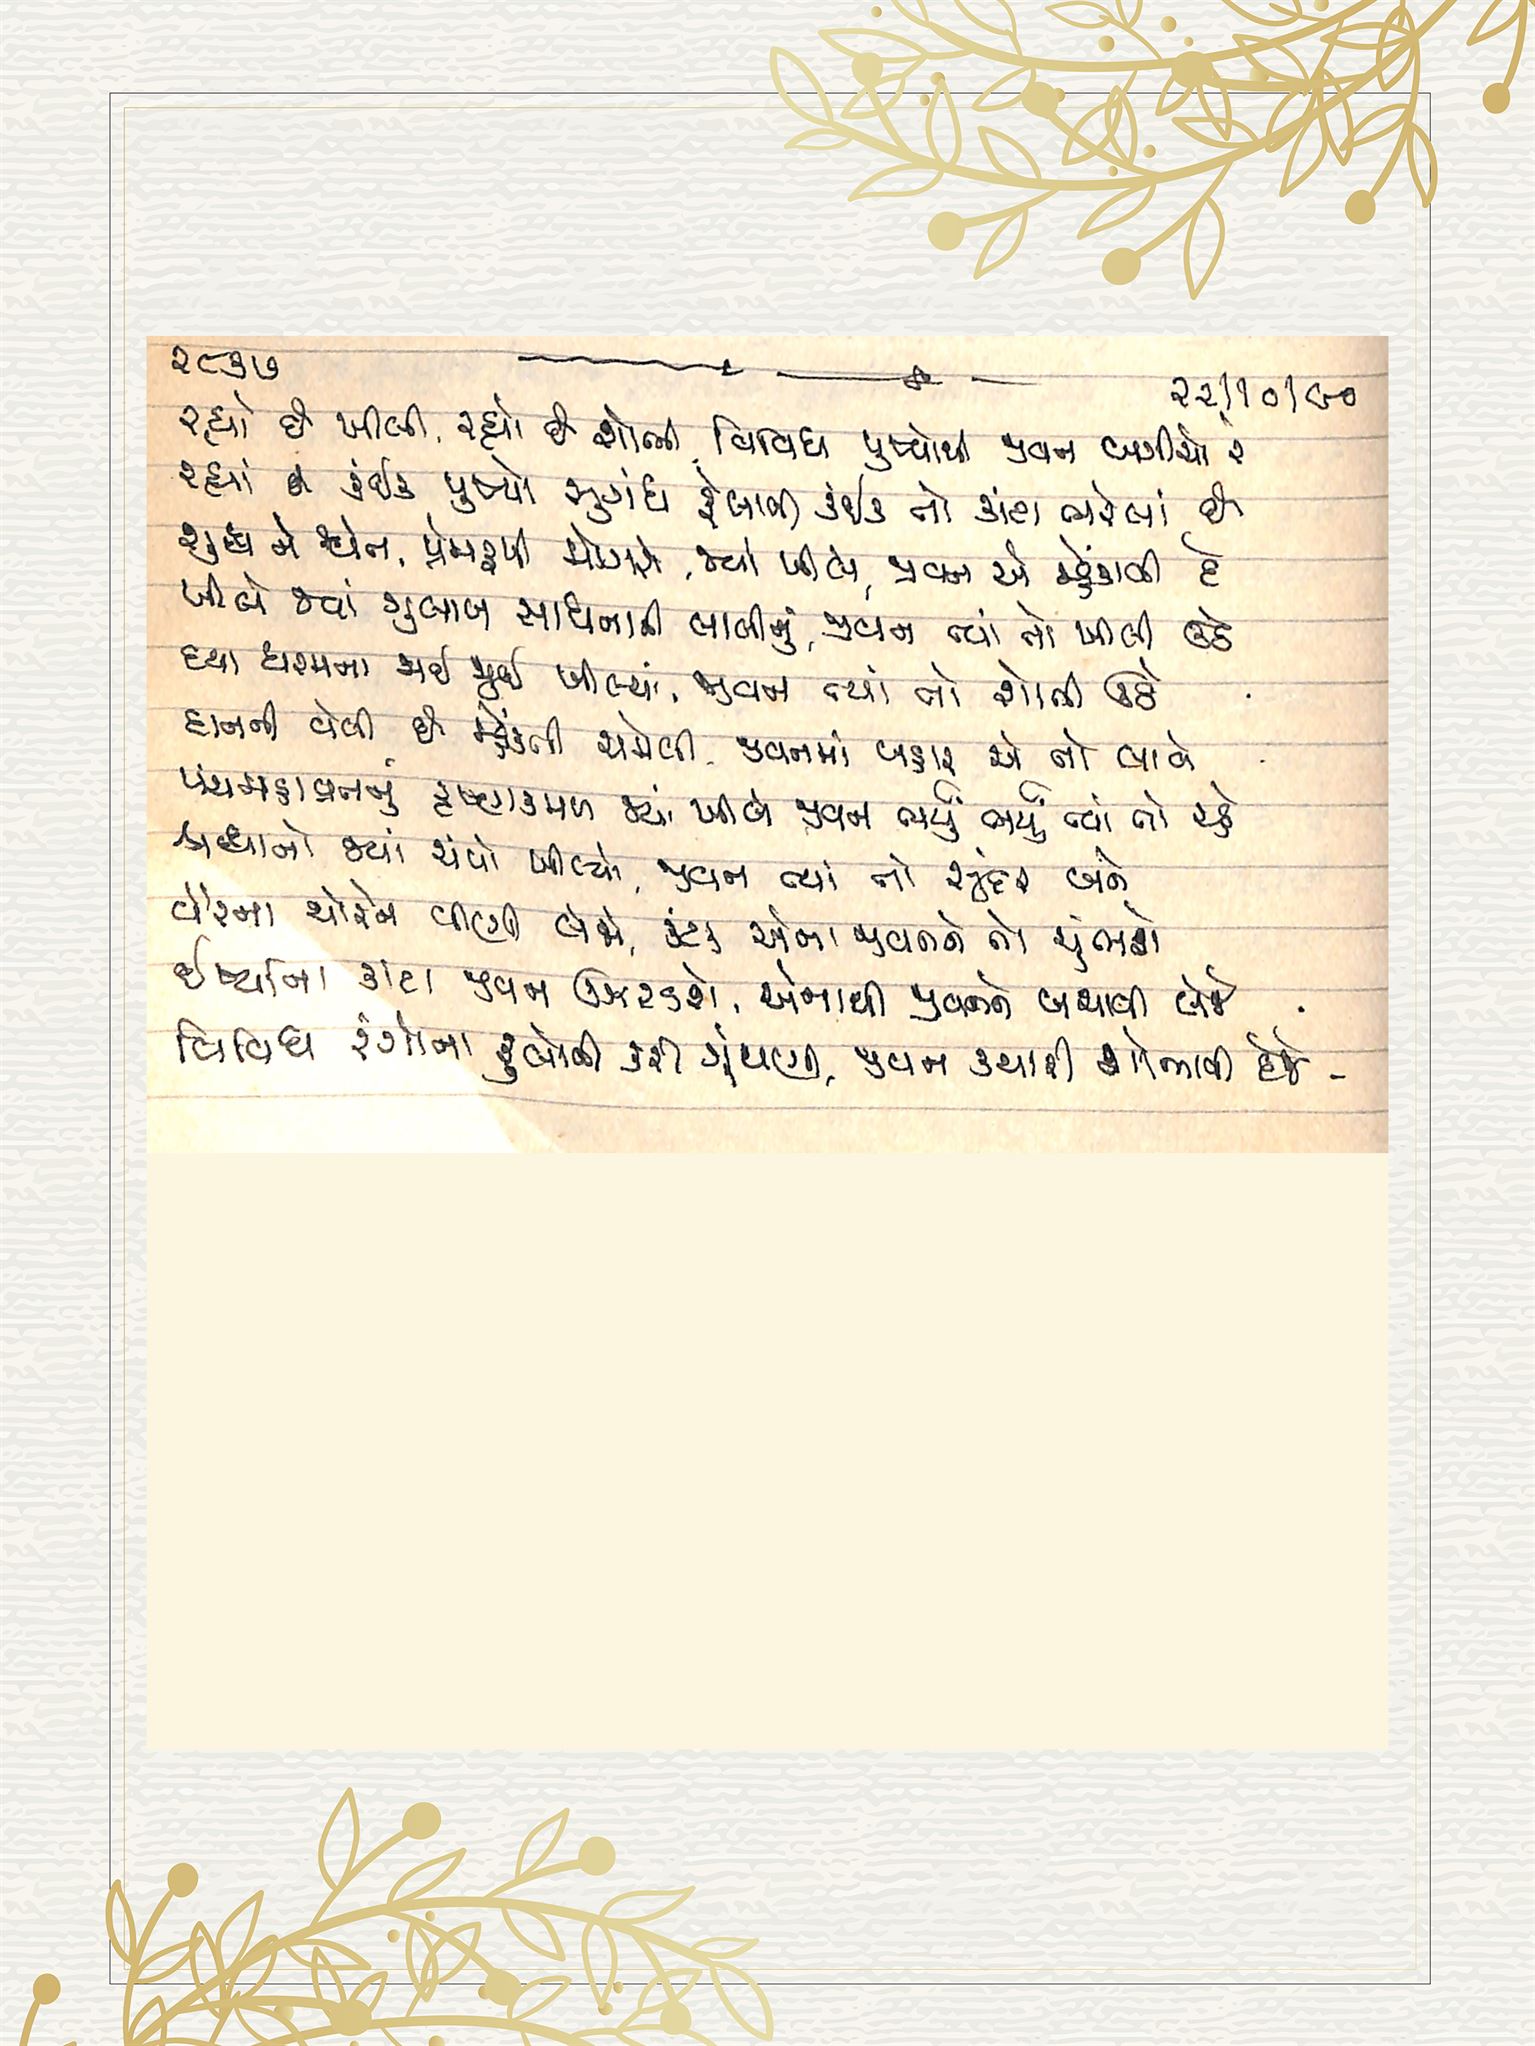 ૨૮૩૭
૨૨/૧૦/૯૦
રહ્યો છે ખીલી, રહ્યો છે શોભી, વિવિધ પુષ્પોથી જીવન બગીચો રે
રહ્યાં કંઈક પુષ્પો સુગંધ ફેલાવી કંઈક તો કાંટા ભરેલાં છે
શુદ્ધ ને શ્વેત, પ્રેમરૂપી મોગરો, જ્યાં ખીલે, જીવન એ મ્હેંકાવી દે
ખીલે જ્યાં ગુલાબ સાધનાની લાલીનું, જીવન ત્યાં તો ખીલી ઊઠે
દયા ધરમના જાઈ જુઈ ખીલ્યાં, જીવન ત્યાં તો શોભી ઊઠે
દાનની વેલી છે મ્હેંકતી ચમેલી, જીવનમાં બહાર એ તો લાવે
પંચમહાવ્રતનું કૃષ્ણકમળ જ્યાં ખીલે જીવન ભર્યું ભર્યું ત્યાં તો રહે
શ્રદ્ધાનો જ્યાં ચંપો ખીલ્યો, જીવન ત્યાં તો સુંદર બને
વેરના થોરને વીણી લેજે, કંટક એના જીવનને તો ચુંભશે
ઈર્ષ્યાના કાંટા જીવન ઊઝરડશે, એનાથી જીવનને બચાવી લેજે
વિવિધ રંગોના ફુલોની કરી ગૂંથણી, જીવન ક્યારી શોભાવી દેજે